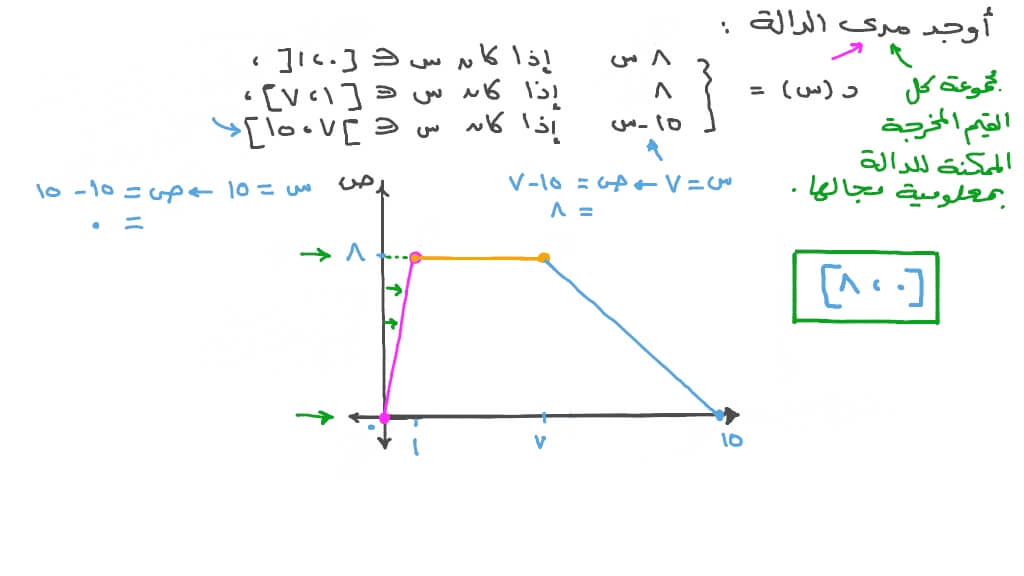 أوجد مدى الدالة :
د (س) =
٨ س إذا كان س ∈ [٠ ، ١[ ،
٨ إذا كان س ∈ [١ ، ٧] ،
١٥-س إذا كان س ∈ ]٧ ، ١٥]
مجموعة كل
القيم المخرجة
الممكنة للدالة
بمعلومية مجالها .
س = ٧ ← ص = ١٥-٧
= ٨
س = ١٥ ← ص = ١٥-١٥
= ٠
ص
٨
[٠ ، ٨]
٠
١
٧
١٥